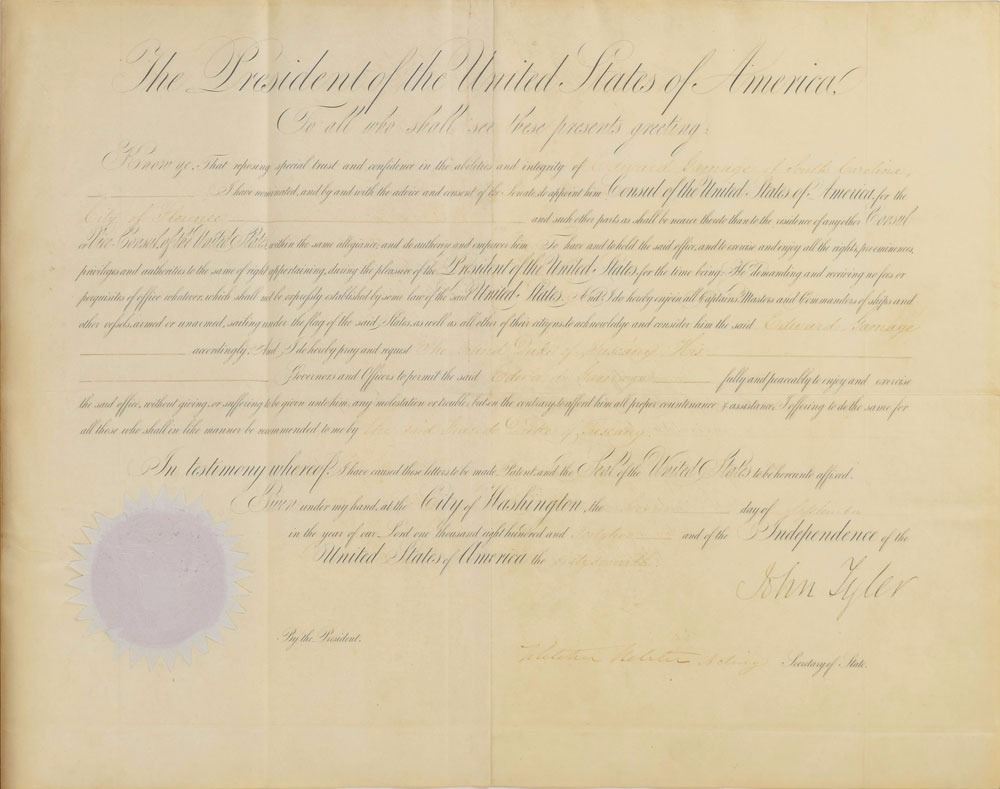 The President of the United States of America,
To all who shall see these presents greeting:
Know ye, That reposing special trust and confidence in the abilities and integrity of Edward Gamage of South Carolina,
I have nominated, and by and with the advice and consent of the Senate, do appoint him Consul of the United States of America, for the
City of Florence and such other parts as shall be nearer thereto than to the residence of any other Consul
or Vice Consul of the United States, within the same allegiance, and do authorize and empower him To have and to hold the said office, and to exercise and enjoy all the rights, preeminences,
privileges and authorities to the same of right appertaining, during the pleasure of the President of the United States, for the time being: He demanding and receiving no fees or
perquisites of office whatever, which shall not be expressly established by some law of the said United States. And I do hereby enjoin all Captains, Masters and Commanders of ships and
other vessels, armed or unarmed, sailing under the flag of the said States, as well as all other of their citizens, to acknowledge and consider him the said Edward Gamage
accordingly. And I do hereby pray and request The Grand Duke of Tuscany, His
Governors and Officers to permit the said Edward Gamage fully and peaceably to enjoy and exercise
the said office, without giving, or suffering to be given unto him, any molestation or trouble, but on the contrary to afford him all proper countenance & assistance; I offering to do the same for
all those who shall in like manner be recommended to me by the said Grand Duke of Tuscany.
In testimony whereof, I have caused these letters to be made Patent, and the Seal of the United States to be hereunto affixed.
Given under my hand, at the City of Washington, the day of September
in the year of our Lord one thousand eight hundred and and of the Independence of the
United States of America, the
John Tyler
By the President.
Fletcher Webster Acting Secretary of State.